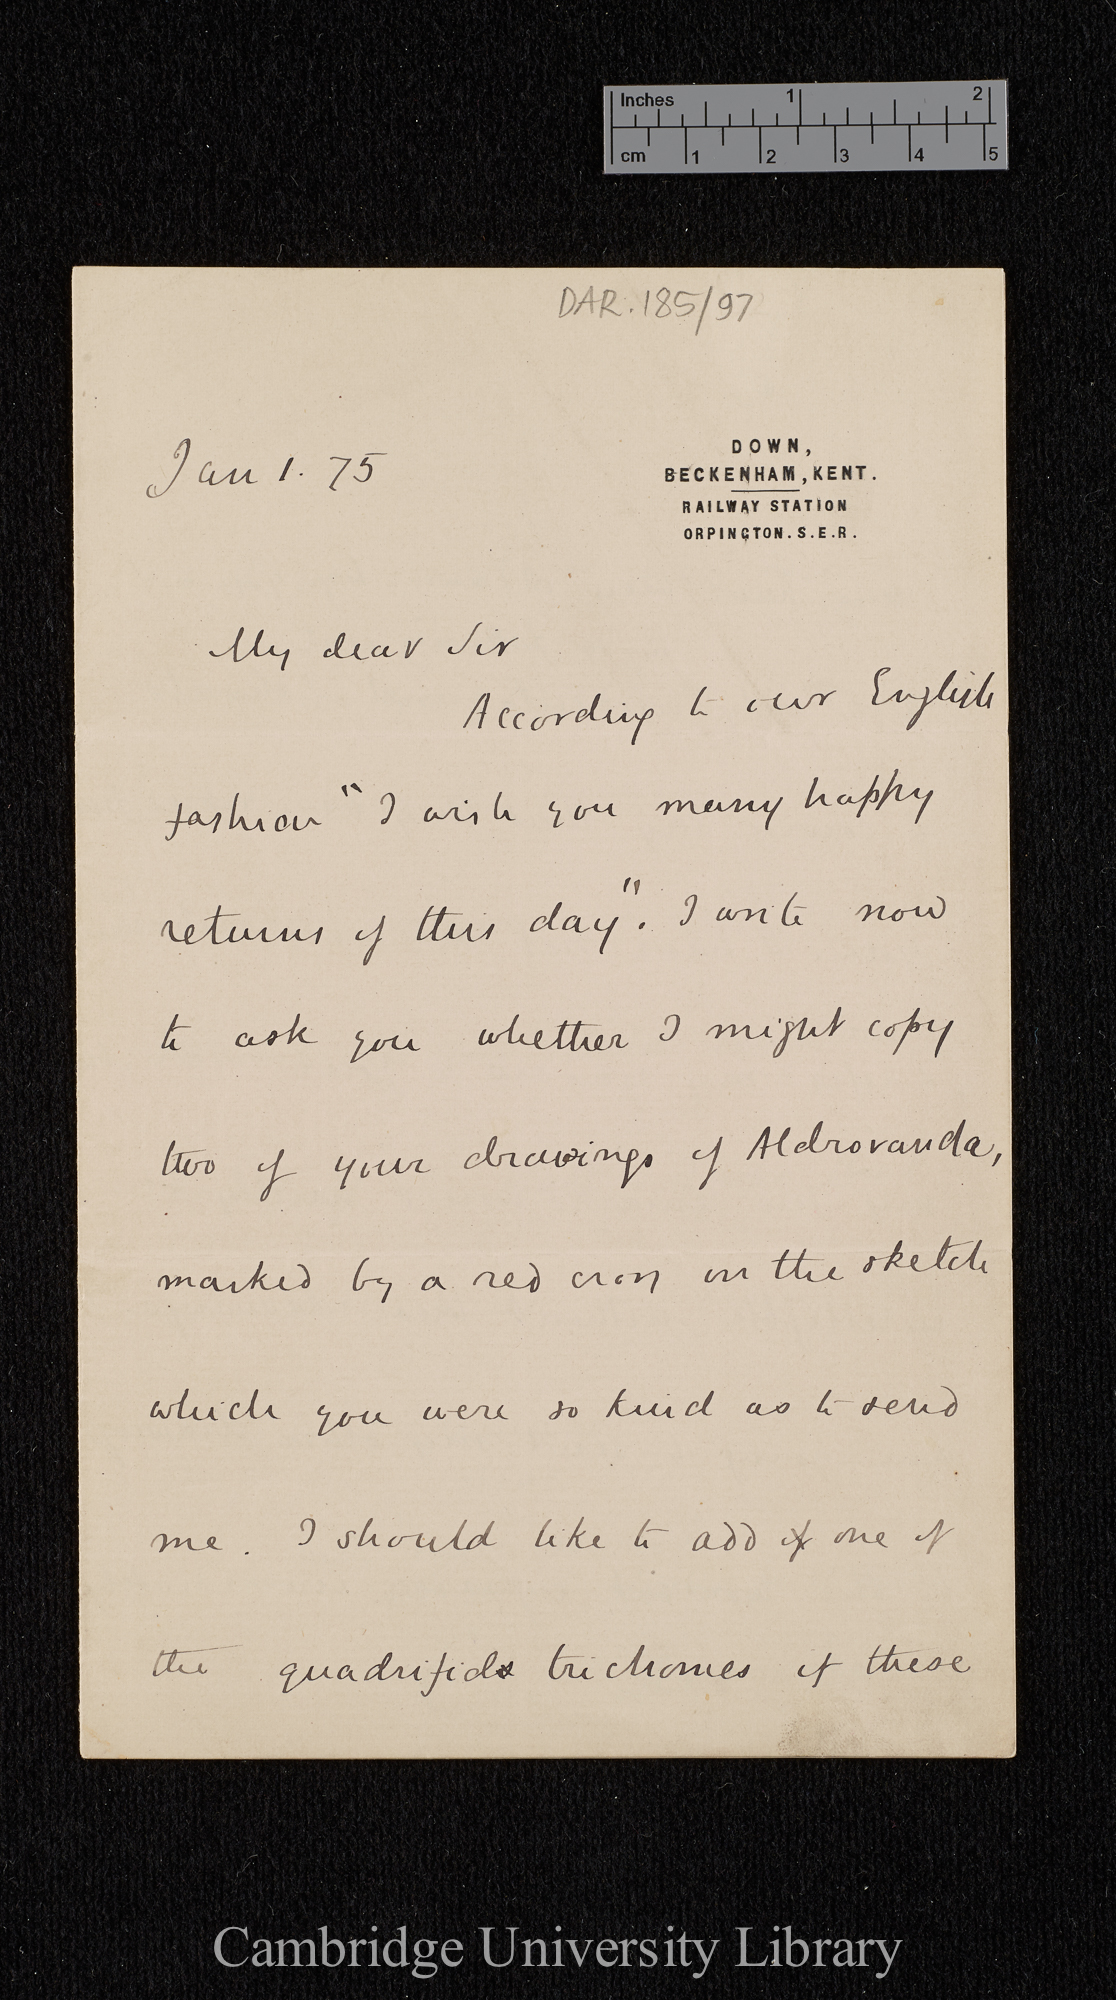 Inches 1 2
cm 1 2 3 4 5
DAR. 185/97
Jan 1. 75
DOWN,
BECKENHAM, KENT.
RAILWAY STATION
ORPINGTON. S.E.R.
My dear Sir
According to our English
fashion "I wish you many happy
returns of this day". I write now
to ask you whether I might copy
two of your drawings of Aldrovanda,
marked by a red cross on the sketch
which you were so kind as to send
me. I should like to add if one of
the quadrifids trichomes if these
Cambridge University Library